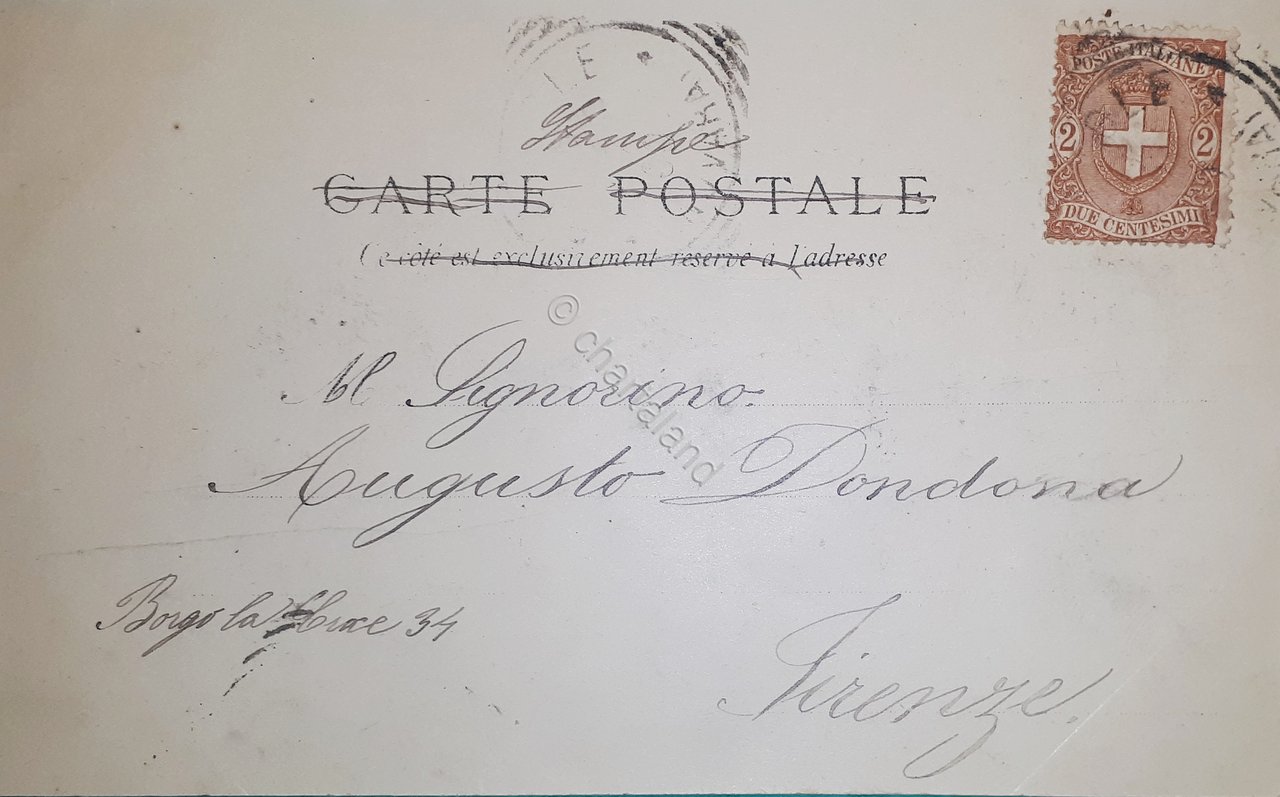 POSTE ITALIANE
2 2
DUE CENTESIMI
Stampe
CARTE POSTALE
Ce côté est exclusivement reservé à l'adresse
© chartaland
Al Signorino
Augusto Dondona
Borgo la Croce 34
Firenze.